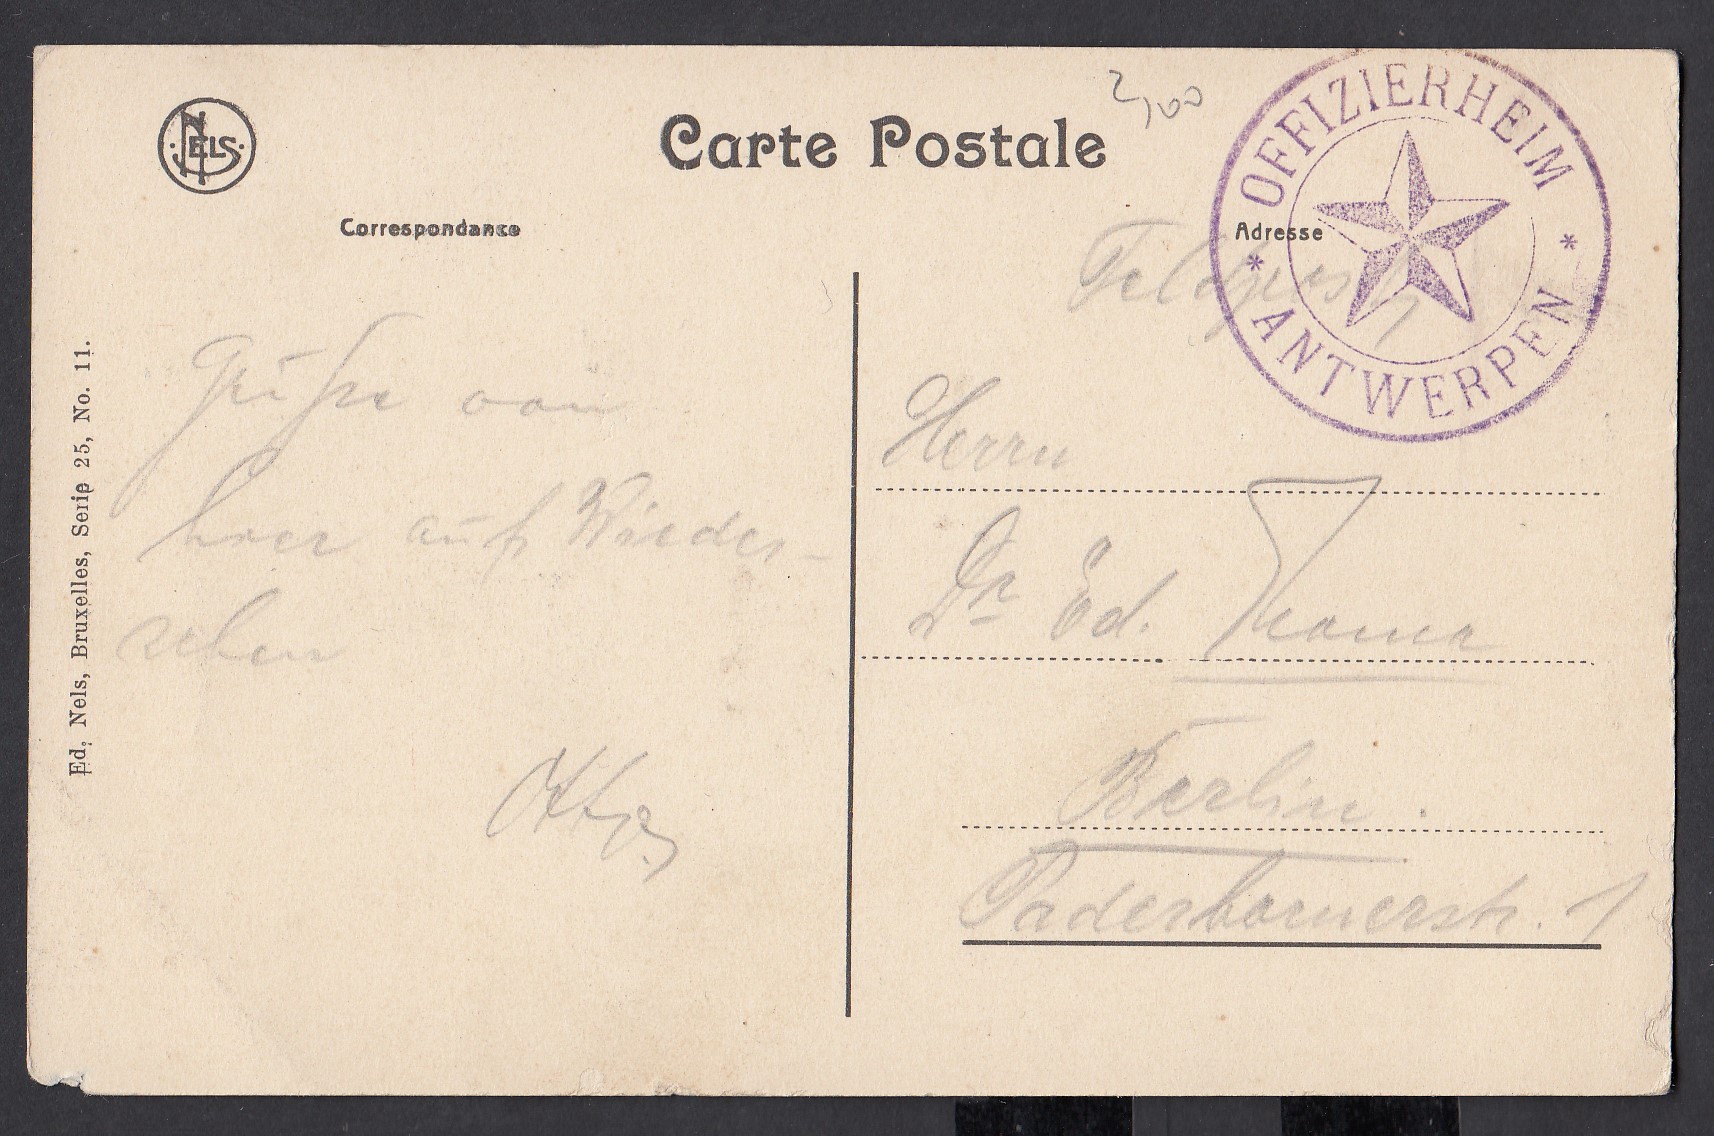 NELS
Carte Postale
2,00
OFFIZIERHEIM
* ANTWERPEN *
Correspondance
Adresse
Feldpost
Grüße von
hier auf Wieder-
sehen
Herrn
Dr. Ed.
Berlin.
Paderbornerstr. 1
Ed. Nels, Bruxelles, Serie 25, No. 11.